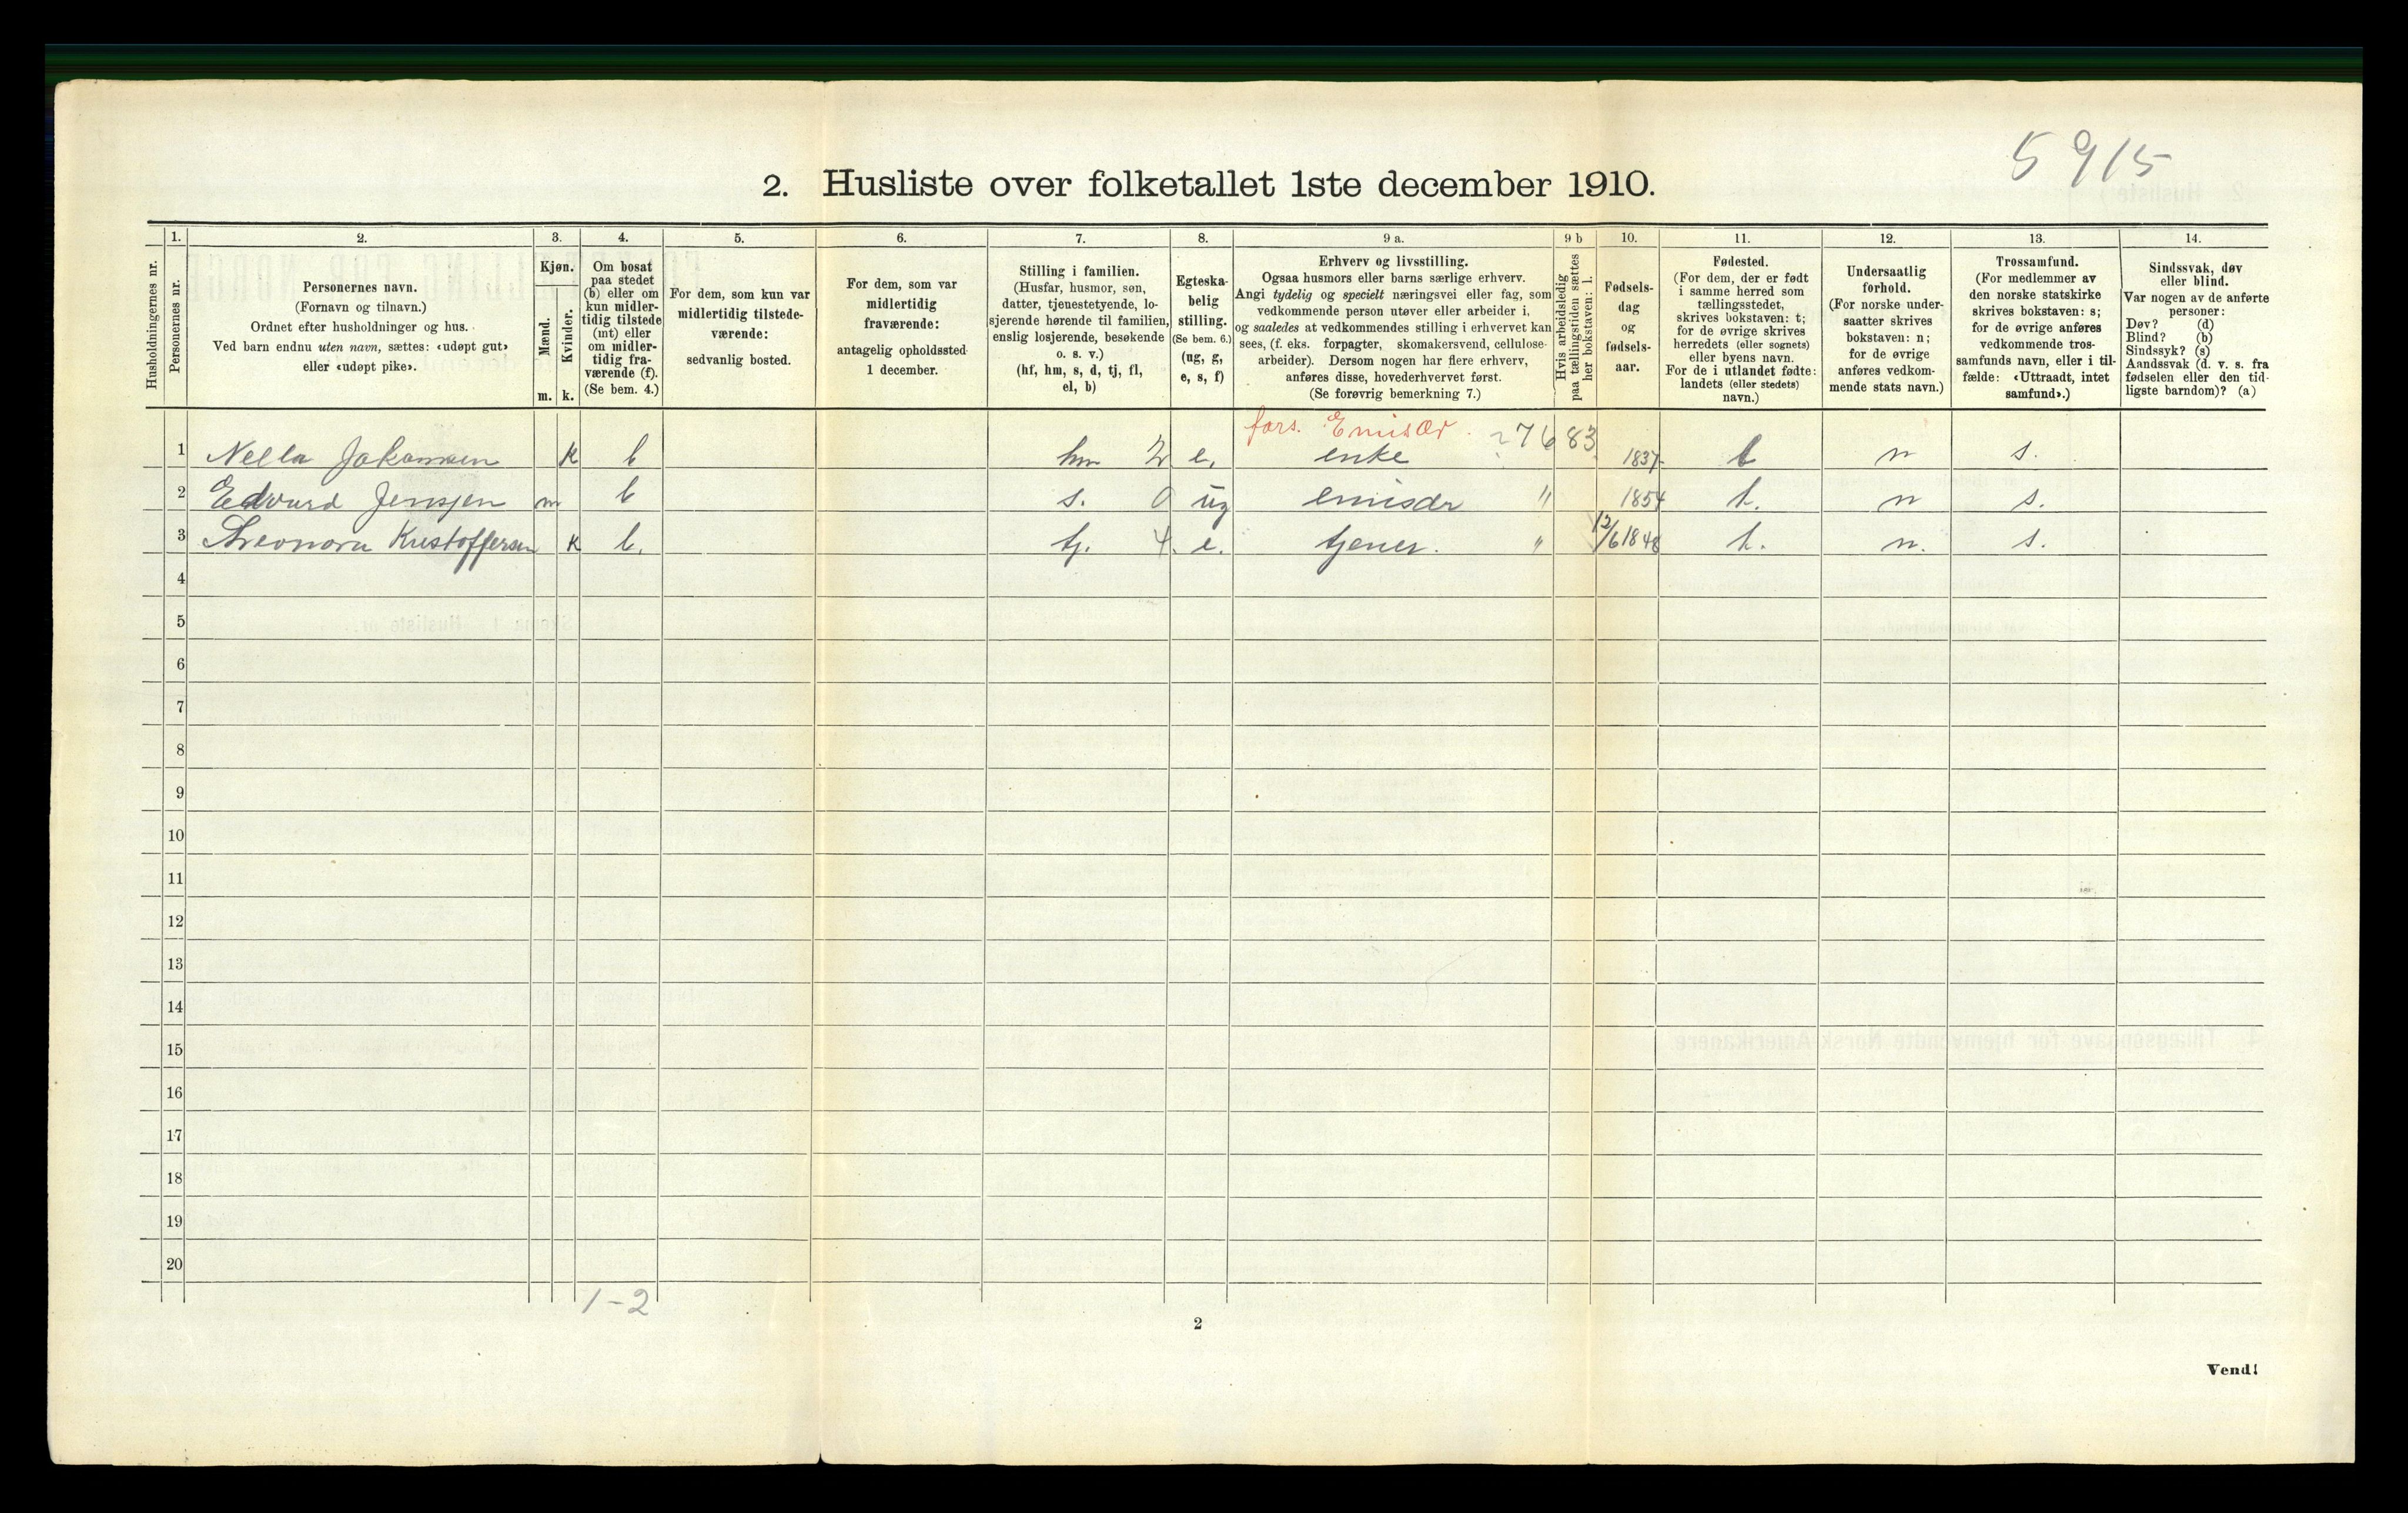 5915
2. Husliste over folketallet 1ste december 1910.
Husholdningernes nr.
1.
Personernes nr.
2.
Personernes navn.
(Fornavn og tilnavn.)
Ordnet efter husholdninger og hus.
Ved barn endnu uten navn, sættes: «udøpt gut»
eller «udøpt pike».
3.
Kjøn.
Mænd.
Kvinder.
m. k.
4.
Om bosat
paa stedet
(b) eller om
kun midler-
tidig tilstede
(mt) eller
om midler-
tidig fra-
værende (f).
(Se bem. 4.)
5.
For dem, som kun var
midlertidig tilstede-
værende:
sedvanlig bosted.
6.
For dem, som var
midlertidig
fraværende:
antagelig opholdssted
1 december.
7.
Stilling i familien.
(Husfar, husmor, søn,
datter, tjenestetyende, lo-
sjerende hørende til familien,
enslig losjerende, besøkende
o. s. v.)
(hf, hm, s, d, tj, fl,
el, b)
8.
Egteska-
belig
stilling.
(Se bem. 6.)
(ug, g,
e, s, f)
9 a.
Erhverv og livsstilling.
Ogsaa husmors eller barns særlige erhverv.
Angi tydelig og specielt næringsvei eller fag, som
vedkommende person utøver eller arbeider i,
og saaledes at vedkommendes stilling i erhvervet kan
sees, (f. eks. forpagter, skomakersvend, cellulose-
arbeider). Dersom nogen har flere erhverv,
anføres disse, hovederhvervet først.
(Se forøvrig bemerkning 7.)
9 b
Hvis arbeidsledig
paa tællingstiden sættes
her bokstaven: l.
10.
Fødsels-
dag
og
fødsels-
aar.
11.
Fødested.
(For dem, der er født
i samme herred som
tællingsstedet,
skrives bokstaven: t;
for de øvrige skrives
herredets (eller sognets)
eller byens navn.
For de i utlandet fødte:
landets (eller stedets)
navn.)
12.
Undersaatlig
forhold.
(For norske under-
saatter skrives
bokstaven: n;
for de øvrige
anføres vedkom-
mende stats navn.)
13.
Trossamfund.
(For medlemmer av
den norske statskirke
skrives bokstaven: s;
for de øvrige anføres
vedkommende tros-
samfunds navn, eller i til-
fælde: «Uttraadt, intet
samfund».)
14.
Sindssvak, døv
eller blind.
Var nogen av de anførte
personer:
Døv? (d)
Blind? (b)
Sindssyk? (s)
Aandssvak (d. v. s. fra
fødselen eller den tid-
ligste barndom)? (a)
fors. Emisær. 7683
1 Nella Jakansen k b hm 2 e. enke 1837 t n s.
2 Edvard Jensjen m b s. 0 ug emisær " 1854 t. n s.
3 Kristoffersen k b. tj. 4. e. tjener. " 12/6 1848 t. n. s.
4
5
6
7
8
9
10
11
12
13
14
15
16
17
18
19
20
1-2
2
Vend!